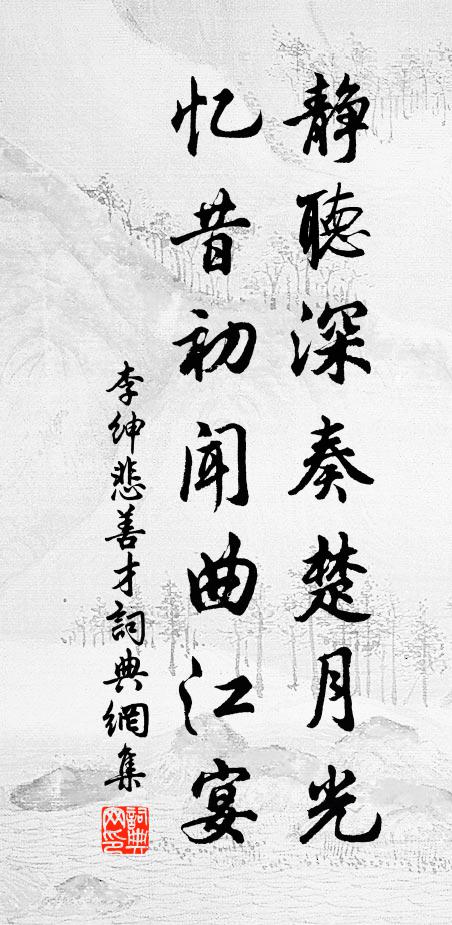 静聽深奏楚月光
忆昔初闻曲江宴
李紳悲善才詞典網集
詞典网印